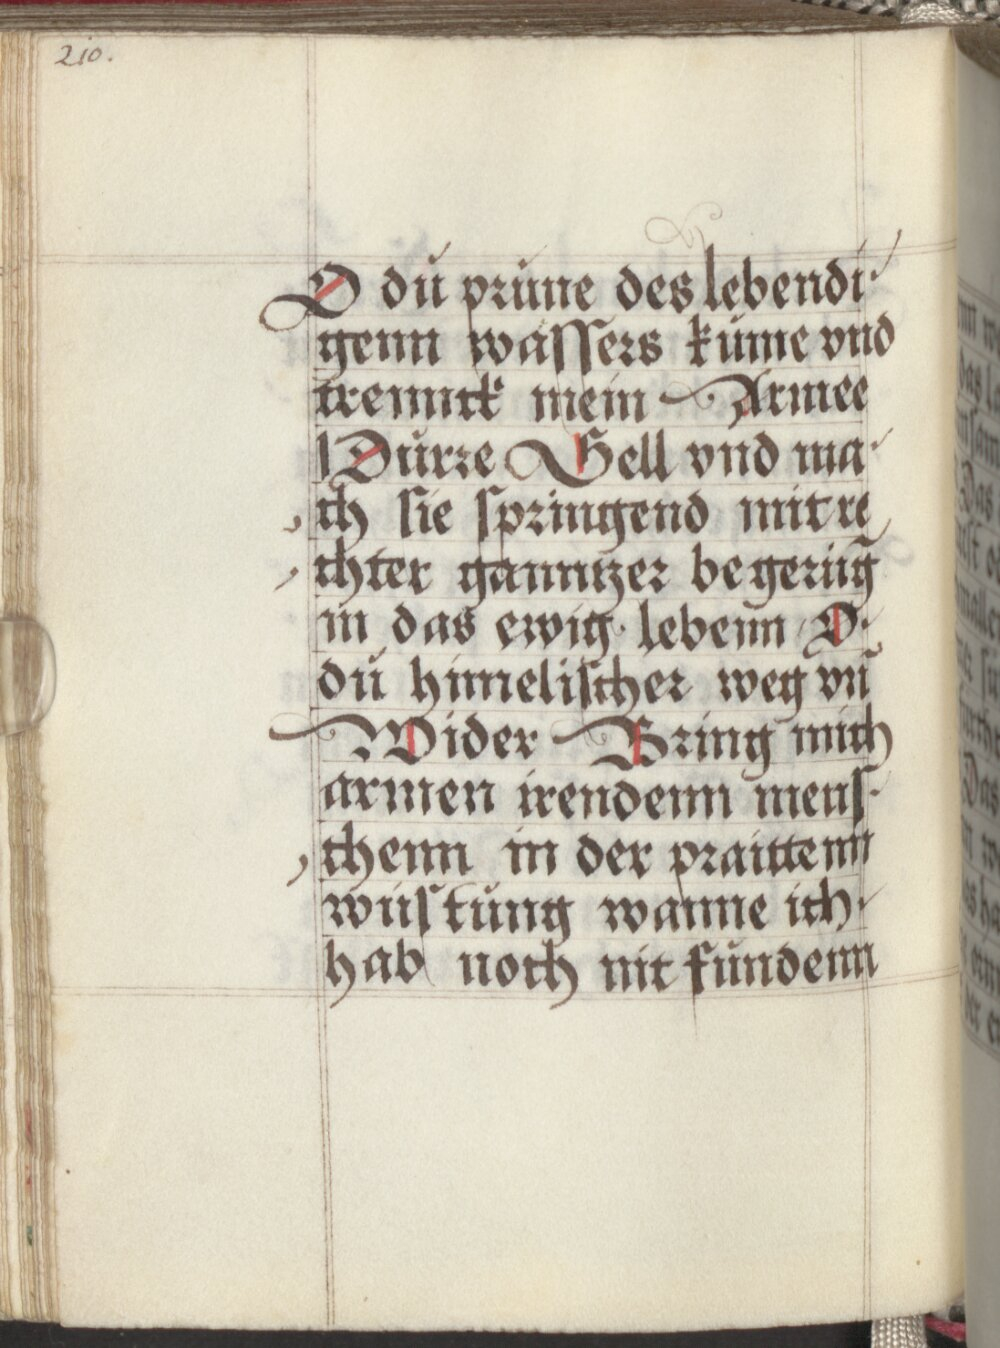 210.
O du prune des lebendi
genn wassers kume vnd
trennck mein Armee
Durre Sell vnd ma
ch sie springend mit re
chter ganntzer begerug
in das ewig lebenn O
du himelischer weg vn̄
Wider Bring mich
armen irendenn mens
chenn in der praittenn
wustung wanne ich
hab noch nit fundenn